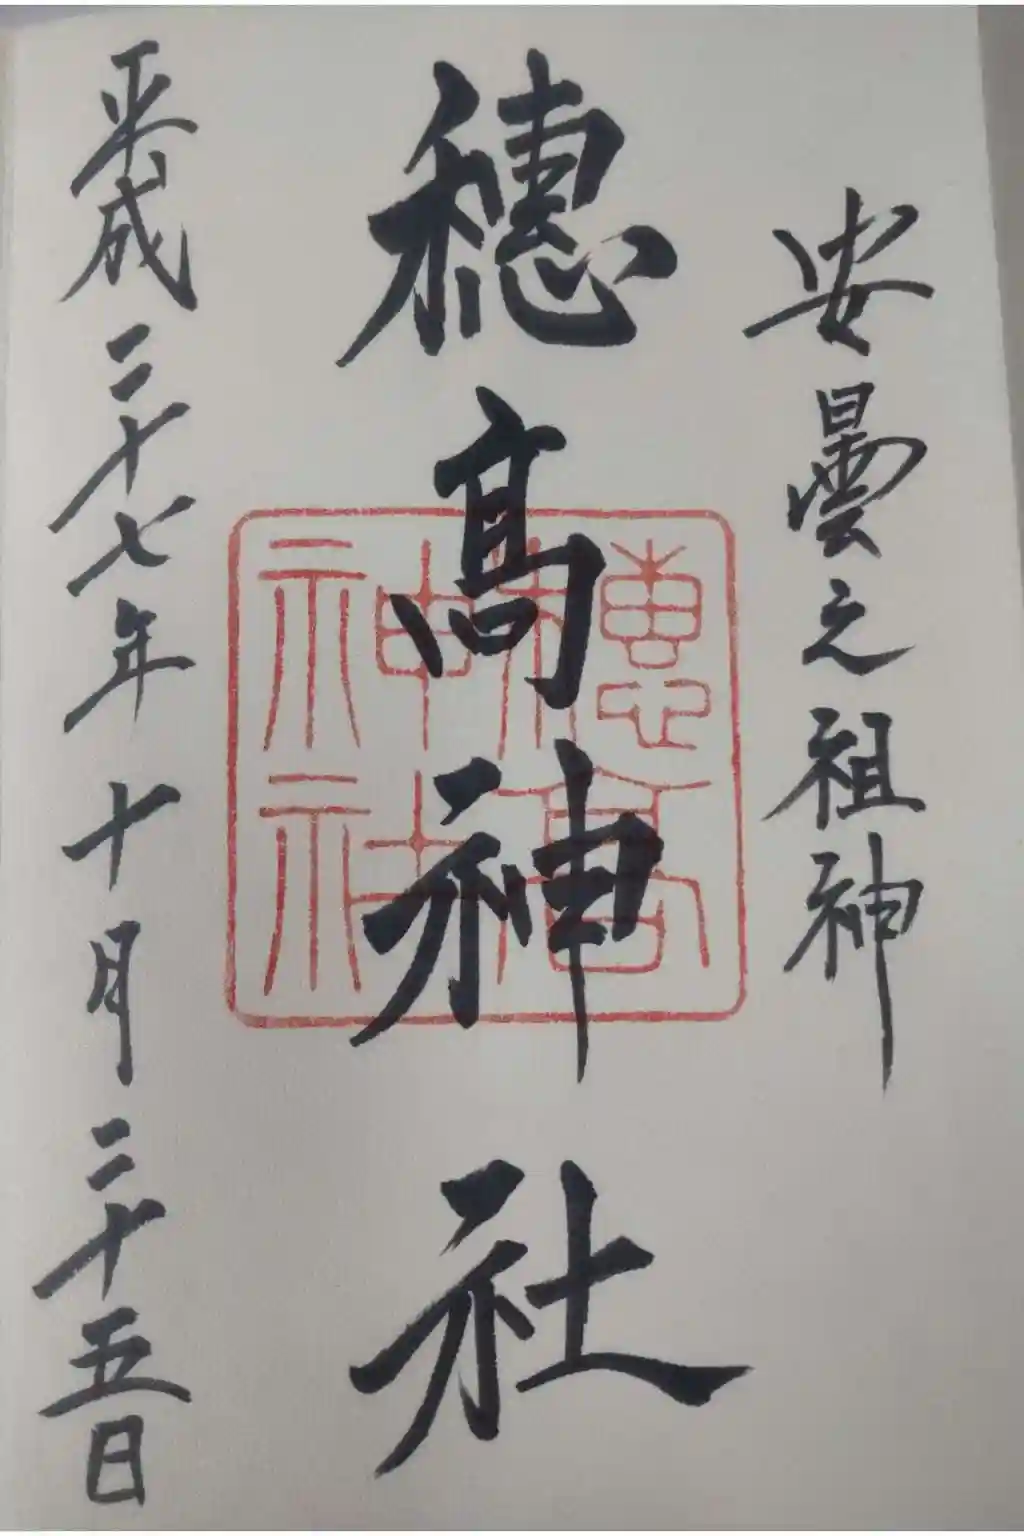 安曇之祖神
穂髙神社
穂髙
神社
平成二十七年十月二十五日